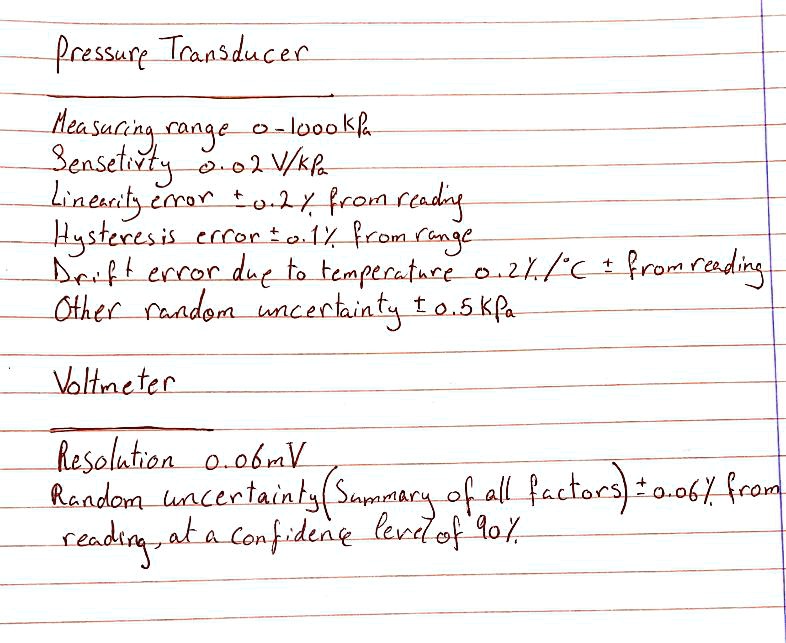 Pressure Transducer
Measuring range 0-1000 kPa
Sensetivty 0.02 V/kPa
Linearity error ± 0.2 % from reading
Hysteresis error ± 0.1% from range
Drift error due to temperature 0.2% /°C ± from reading
Other random uncertainty ± 0.5 kPa
Voltmeter
Resolution 0.06mV
Random uncertainty (Summary of all factors) ± 0.06% from
reading, at a confidence level of 90%